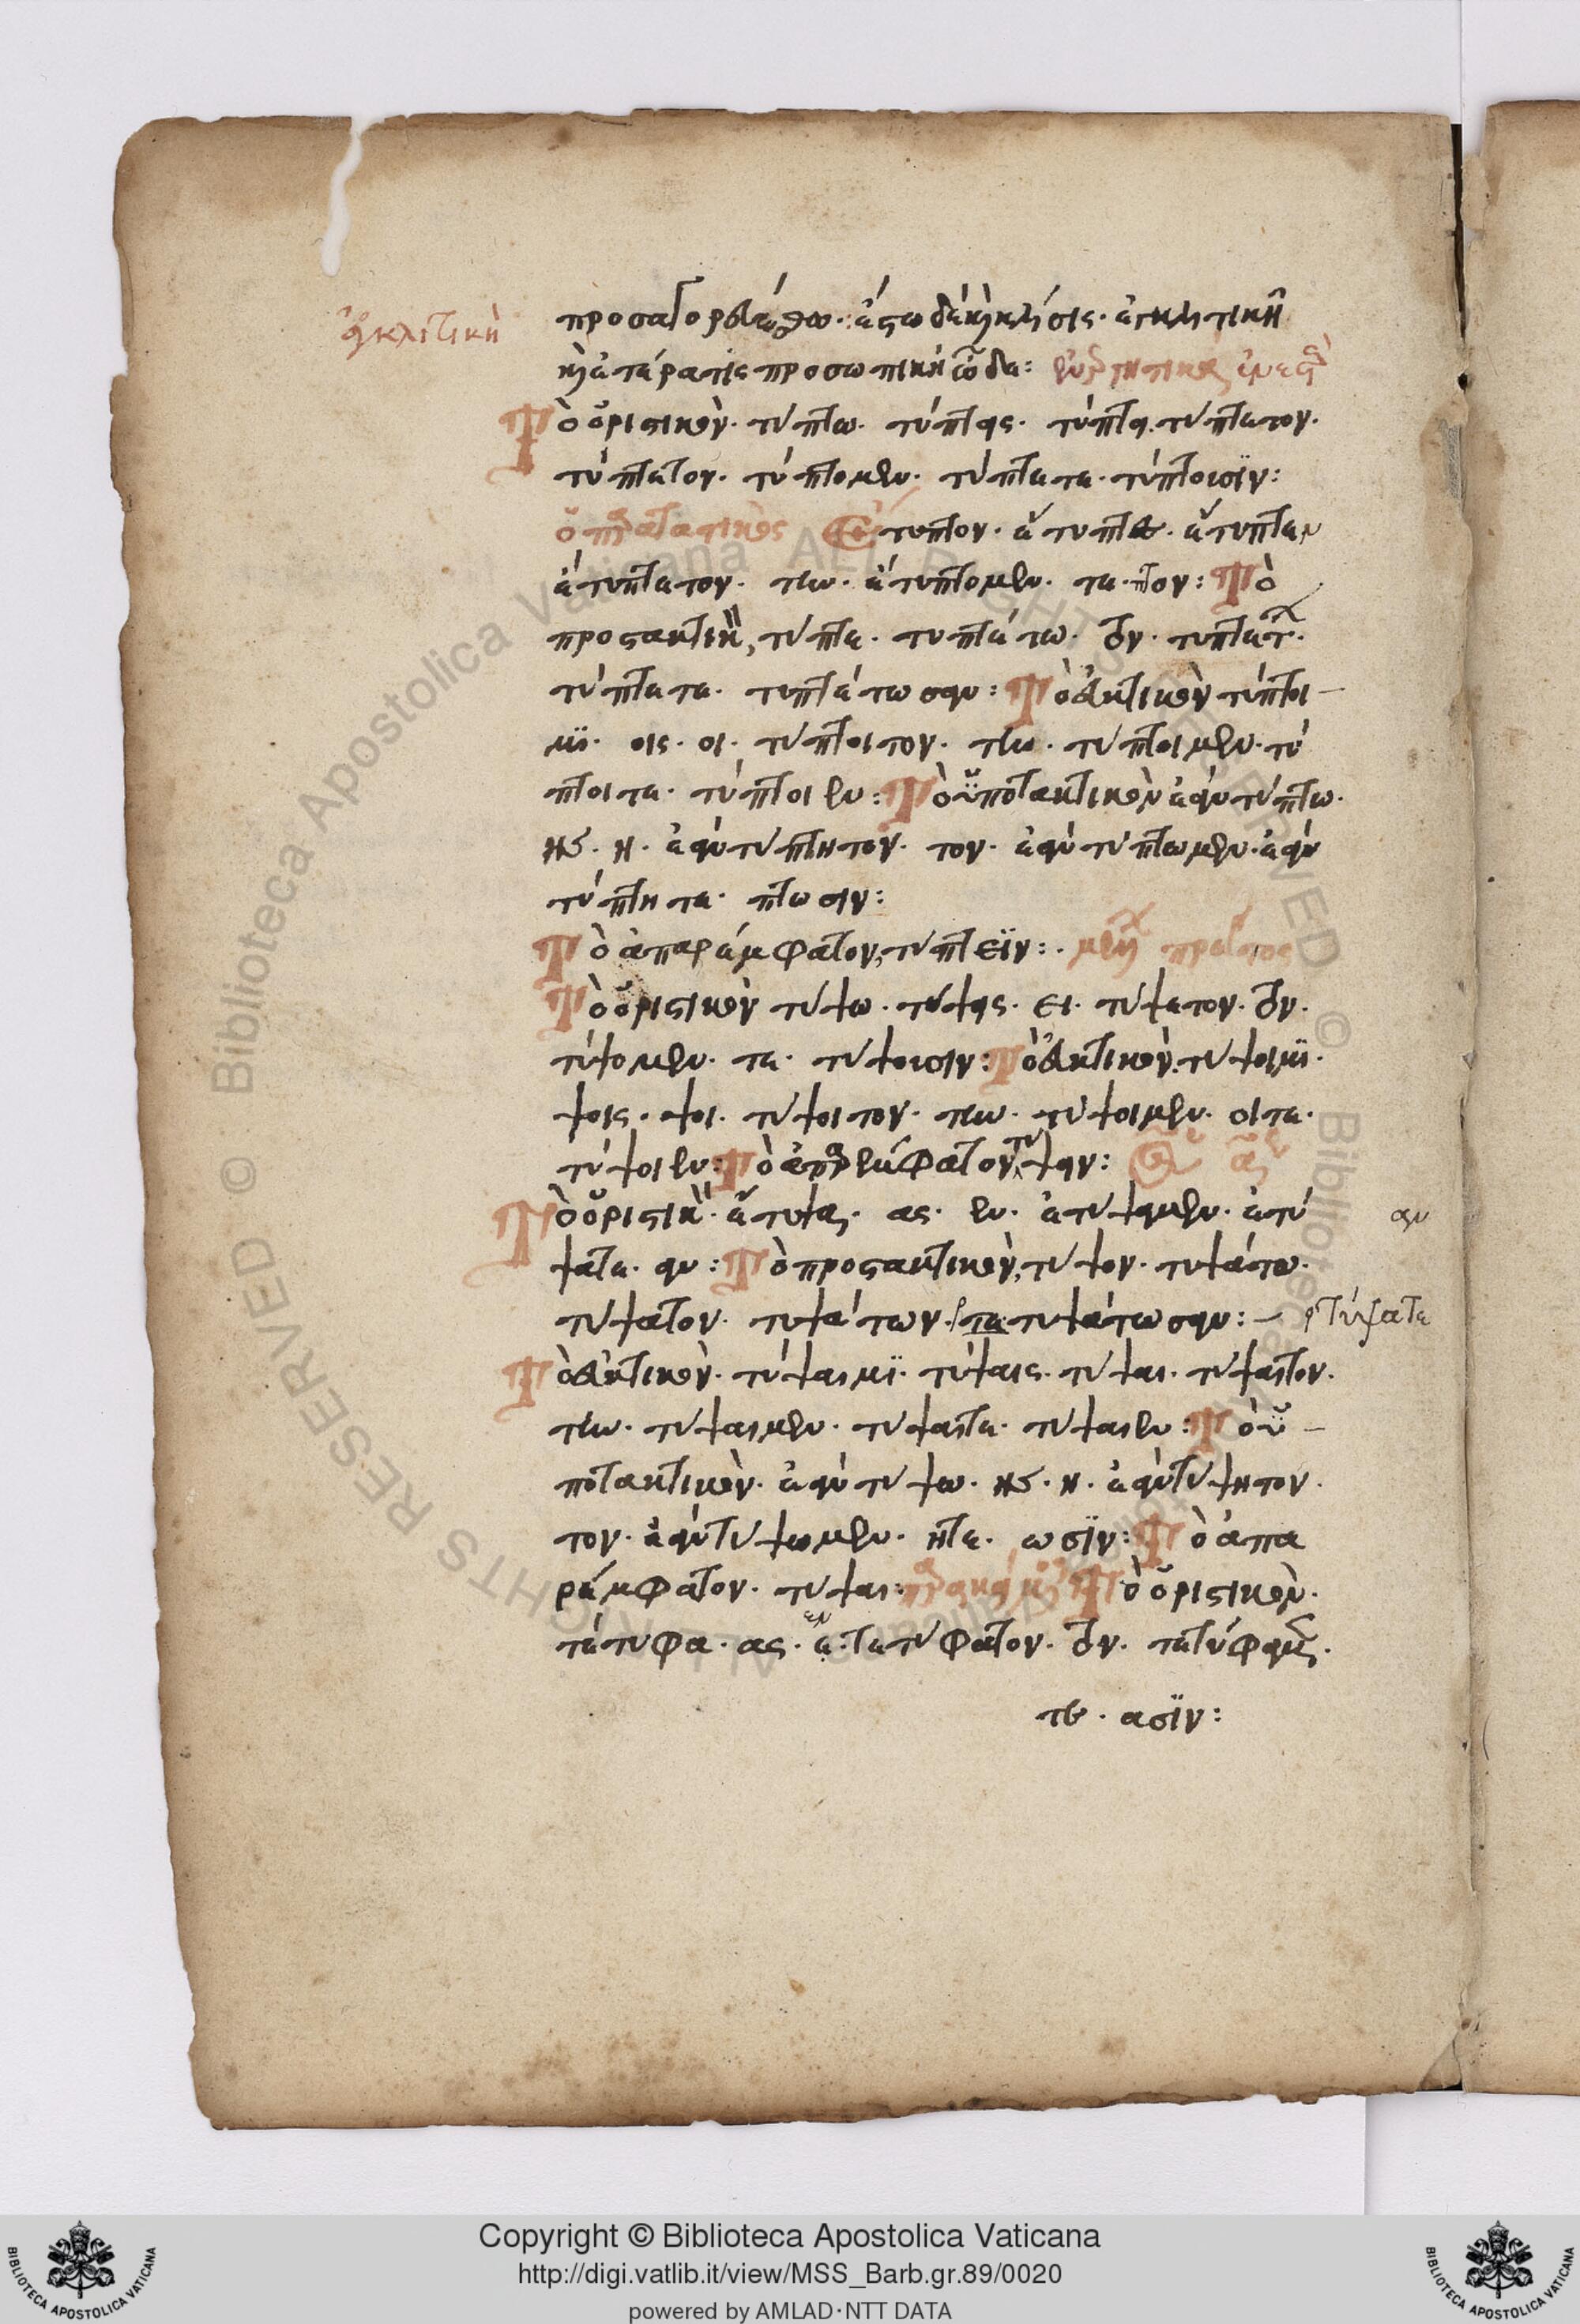 ἐγκλιτικὴ
προσαγορευέσθω· ἔστω δὲ καὶ κλίσις· ἐγκλιτικὴ
καὶ ἑτέρα τίς προσωπικὴ ὧδε: ἐνεστὼς
Τὸ ὁριστικὸν· τύπτω· τύπτεις· τύπτει· τύπτετον·
τύπτετον· τύπτομεν· τύπτετε· τύπτουσϊν:
ὁ παρατατικὸς Ἔτυπτον· ἔτυπτες· ἔτυπτεν
ἐτύπτετον· την· ἐτύπτομεν· τε· πτον: Τὸ
προστακτικὸν, τύπτε· τυπτέτω· τον· τυπτέτων·
τύπτετε· τυπτέτωσαν: Τὸ εὐκτικὸν τύπτοι-
μϊ· οις· οι· τύπτοιτον· την· τύπτοιμεν· τύ
πτοιτε· τύπτοιεν: Τὸ ὑποτακτικὸν ἐὰν τύπτω·
ης· η· ἐὰν τύπτητον· τον· ἐὰν τύπτωμεν· ἐὰν
τύπτητε· πτωσιν:
Τὸ ἀπαρέμφατον, τύπτεϊν: μέλλων πρῶτος
Τὸ ὁριστικὸν τύψω· τύψεις· ει· τύψετον· τον·
τύψομεν· τε· τύψουσιν: Τὸ εὐκτικὸν· τύψοιμϊ·
ψοις· ψοι· τύψοιτον· την· τύψοιμεν· οιτε·
τύψοιεν: Τὸ ἀπαρέμφατον τύψειν:
Τὸ ὁριστικὸν· ἔτυψα· ας· εν· ἐτύψαμεν· ἐτύ
αν
ψατε· αν: Τὸ προστακτικὸν, τύψον· τυψάτω·
τύψατον· τυψάτων· τε τυψάτωσαν: – τύψατε
Τὸ εὐκτικὸν· τύψαιμϊ· τύψαις· τύψαι· τύψαιτον·
την· τύψαιμεν· τύψαιτε· τύψαιεν: Τὸ ὑ–
ποτακτικὸν· ἐὰν τύψω· ης· η· ἐὰν τύψητον·
τον· ἐὰν τύψωμεν· ητε· ωσϊν: Τὸ ἀπα
ρέμφατον· τύψαι: παρακείμενος Τὸ ὁριστικὸν·
τέτυφα· ας· ε· τετύφατον· τον· τετύφαμεν·
τε· ασϊν:
Copyright © Biblioteca Apostolica Vaticana
http://digi.vatlib.it/view/MSS_Barb.gr.89/0020
powered by AMLAD·NTT DATA